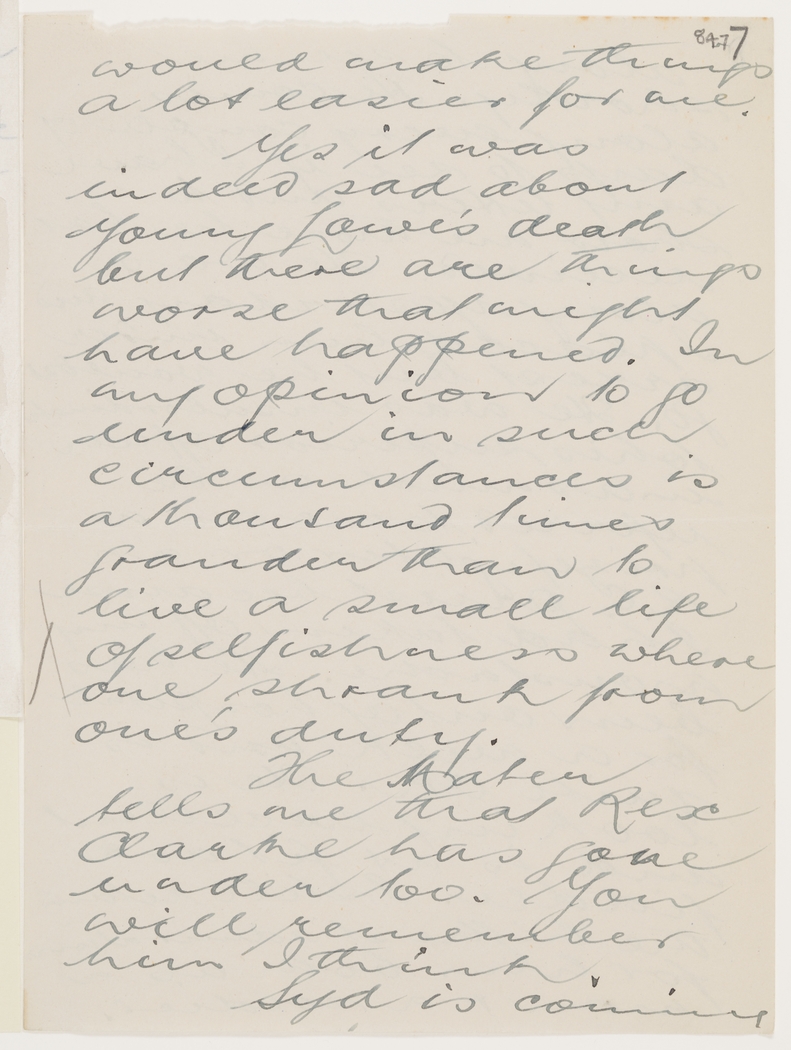 8477
would make things
a lot easier for me.
Yes it was
indeed sad about
young Lowe's death
but there are things
worse that might
have happened. In
my opinion to go
under in such
circumstances is
a thousand times
grander than to
live a small life
of selfishness where
one shrank from
one's duty.
The Mater
tells me that Rex
Clarke has gone
under too. You
will remember
him I think
Syd is coming